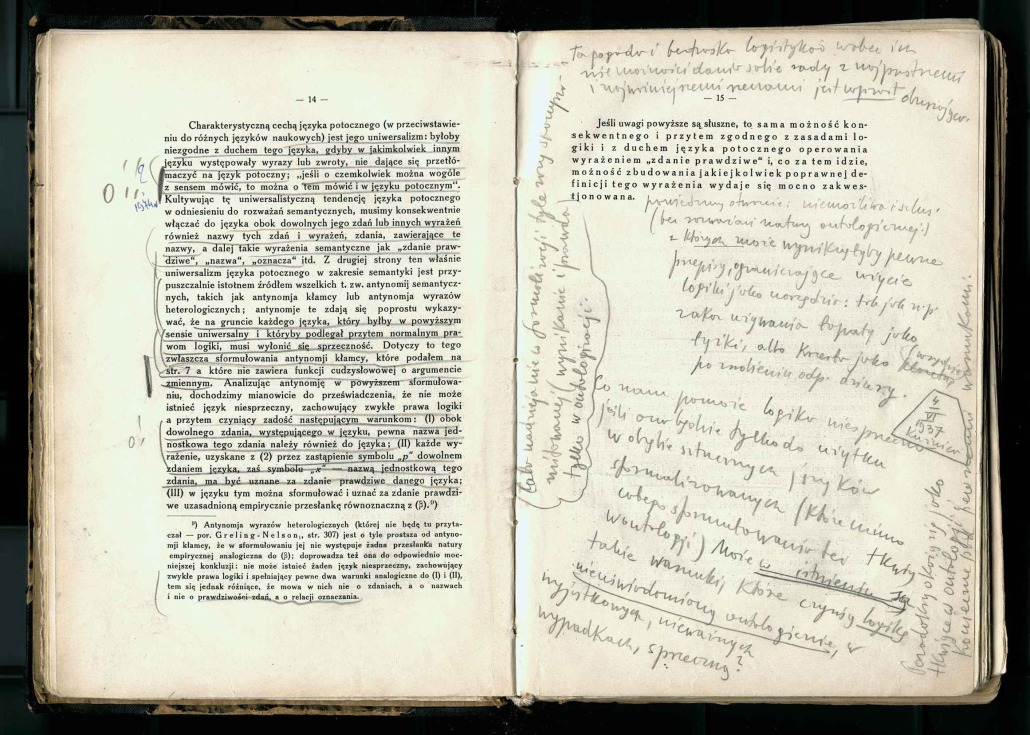 — 14 —
Charakterystyczną cechą języka potocznego (w przeciwstawie-
niu do różnych języków naukowych) jest jego uniwersalizm: byłoby
niezgodne z duchem tego języka, gdyby w jakimkolwiek innym
języku występowały wyrazy lub zwroty, nie dające się przetłó-
maczyć na język potoczny; „jeśli o czemkolwiek można wogóle
z sensem mówić, to można o tem mówić i w języku potocznym".
Kultywując tę uniwersalistyczną tendencję języka potocznego
w odniesieniu do rozważań semantycznych, musimy konsekwentnie
włączać do języka obok dowolnych jego zdań lub innych wyrażeń
również nazwy tych zdań i wyrażeń, zdania, zawierające te
nazwy, a dalej takie wyrażenia semantyczne jak „zdanie praw-
dziwe", „nazwa", „oznacza" itd. Z drugiej strony ten właśnie
uniwersalizm języka potocznego w zakresie semantyki jest przy-
puszczalnie istotnem źródłem wszelkich t. zw. antynomij semantycz-
nych, takich jak antynomja kłamcy lub antynomja wyrazów
heterologicznych; antynomje te zdają się poprostu wykazy-
wać, że na gruncie każdego języka, który byłby w powyższym
sensie uniwersalny i któryby podlegał przytem normalnym pra-
wom logiki, musi wyłonić się sprzeczność. Dotyczy to tego
zwłaszcza sformułowania antynomji kłamcy, które podałem na
str. 7 a które nie zawiera funkcji cudzysłowowej o argumencie
zmiennym. Analizując antynomję w powyższem sformułowa-
niu, dochodzimy mianowicie do przeświadczenia, że nie może
istnieć język niesprzeczny, zachowujący zwykłe prawa logiki
a przytem czyniący zadość następującym warunkom: (I) obok
dowolnego zdania, występującego w języku, pewna nazwa jed-
nostkowa tego zdania należy również do języka; (II) każde wy-
rażenie, uzyskane z (2) przez zastąpienie symbolu „p" dowolnem
zdaniem języka, zaś symbolu „x" — nazwą jednostkową tego
zdania, ma być uznane za zdanie prawdziwe danego języka;
(III) w języku tym można sformułować i uznać za zdanie prawdzi-
we uzasadnioną empirycznie przesłankę równoznaczną z (β).⁹)
⁹) Antynomja wyrazów heterologicznych (której nie będę tu przyta-
czał — por. Greling-Nelson₁, str. 307) jest o tyle prostsza od antyno-
mji kłamcy, że w sformułowaniu jej nie występuje żadna przesłanka natury
empirycznej analogiczna do (β); doprowadza też ona do odpowiednio moc-
niejszej konkluzji: nie może istnieć żaden język niesprzeczny, zachowujący
zwykłe prawa logiki i spełniający pewne dwa warunki analogiczne do (I) i (II),
tem się jednak różniące, że mowa w nich nie o zdaniach, a o nazwach
i nie o prawdziwości zdań, a o relacji oznaczania.
Ta pogarda i beztroska logistyków wobec ich
niemożności dania sobie rady z najprostszemi
i najważniejszemi rzeczami jest wprost
— 15 —
Jeśli uwagi powyższe są słuszne, to sama możność kon-
sekwentnego i przytem zgodnego z zasadami lo-
giki i z duchem języka potocznego operowania
wyrażeniem „zdanie prawdziwe" i, co za tem idzie,
możność zbudowania jakiejkolwiek poprawnej de-
finicji tego wyrażenia wydaje się mocno zakwes-
tjonowana.
powiedzmy otwarcie: niemożliwa
(bez rozważań natury ontologicznej!)
z których może wyniknęłyby pewne
przepisy, ograniczające użycie
logiki jako narzędzia: tak jak n.p.
zakaz używania łopaty jako
łyżki, albo krzesła jako
4
VI
1937
Co nam pomoże logika niesprzeczna
jeśli ona będzie tylko do użytku
w obrębie sztucznych języków
sformalizowanych (które mimo
całego sformułowania też tkwią
w ontologji) Może w istnieniu są
takie warunki, które czynią logikę
nieuświadomioną ontologicznie, w
wyjątkowych, nieważnych
wypadkach, sprzeczną?